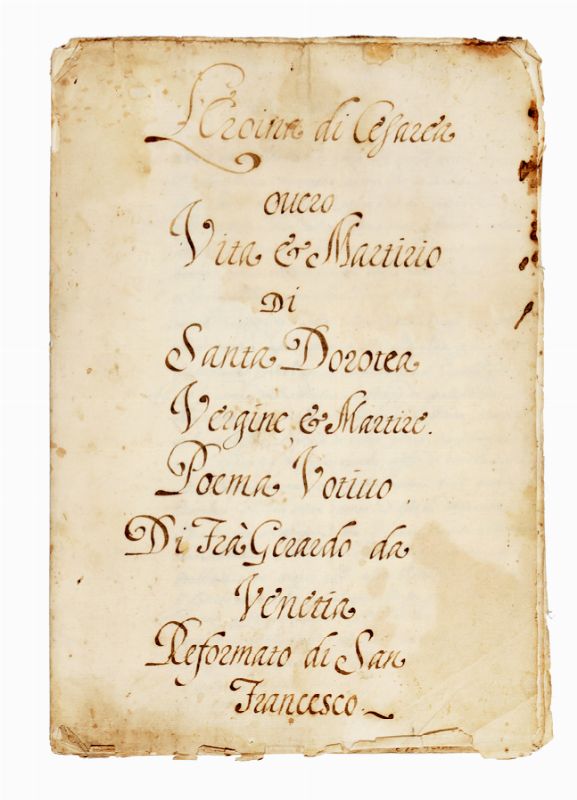 L'Eroina di Cesarea
ouero
Vita & Martirio
Di
Santa Dorotea
Vergine, & Martire.
Poema Votiuo
Di Frà Gerardo da
Venetia
Reformato di San
Francesco